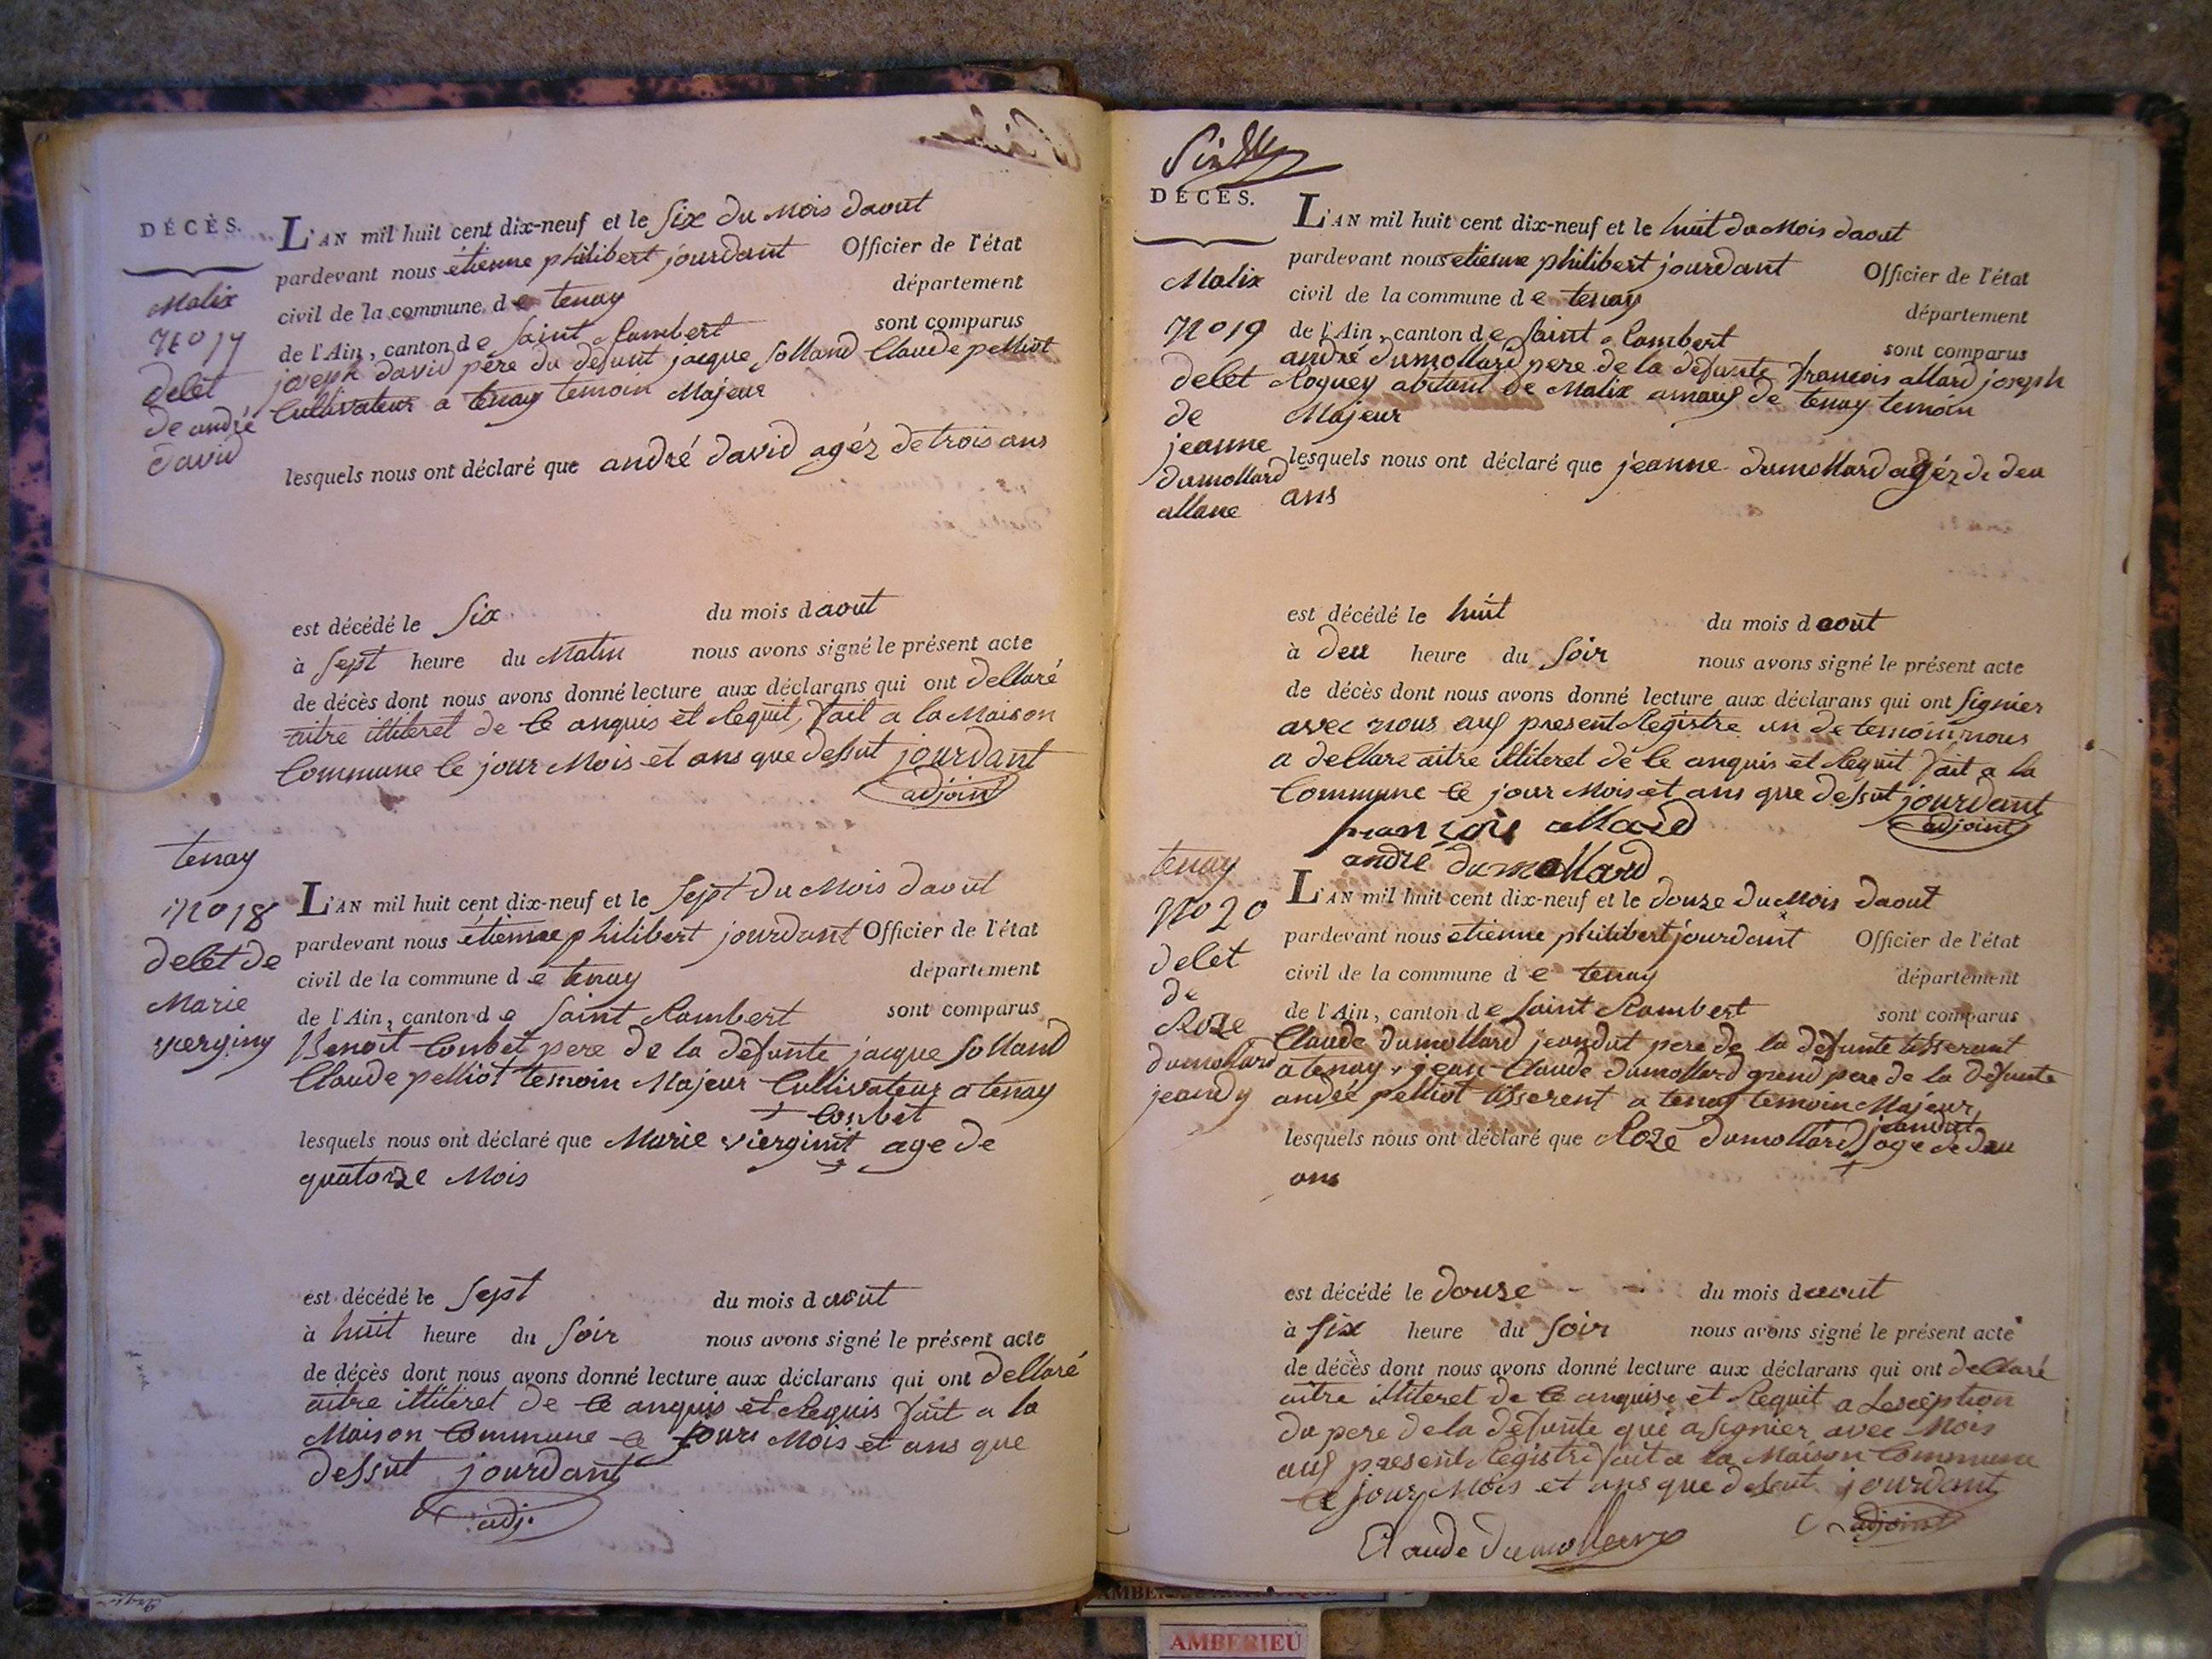 DÉCÈS.
Malix
N° 17
delet
de andré
david
L'AN mil huit cent dix-neuf et le six du mois daout
pardevant nous étienne philibert jourdant Officier de l'état
civil de la commune de tenay département
de l'Ain, canton de saint Rambert sont comparus
joseph david père du defunt jacque solland Claude pelliot
Cultivateur a tenay temoin Majeur
lesquels nous ont déclaré que andré david agéz de trois ans
est décédé le six du mois daout
à sept heure du Matin nous avons signé le présent acte
de décès dont nous avons donné lecture aux déclarans qui ont dellaré
aitre illiteret de Ce anquis et Requit, fait a la Maison
Commune Ce jour Mois et ans que dessut jourdant
adjoint
tenay
N° 18
delet de
Marie
vierginy
L'AN mil huit cent dix-neuf et le sept du Mois daout
pardevant nous étienne philibert jourdant Officier de l'état
civil de la commune de tenay département
de l'Ain, canton de saint Rambert sont comparus
Benoit Conbet pere de la defunte jacque solland
Claude pelliot temoin Majeur Cultivateur a tenay
+ Conbet
lesquels nous ont déclaré que Marie vierginit age de
quatorze Mois
est décédé le sept du mois daout
à huit heure du soir nous avons signé le présent acte
de décès dont nous avons donné lecture aux déclarans qui ont dellaré
aitre illiteret de Ce anquis et Requis fait a la
Maison Commune Ce jours Mois et ans que
dessut jourdant
adj.
DÉCÈS.
Malix
N° 19
delet
de
jeanne
dumollard
allane
L'AN mil huit cent dix-neuf et le huit du Mois daout
pardevant nous etienne philibert jourdant Officier de l'état
civil de la commune de tenay département
de l'Ain, canton de saint Rambert sont comparus
andré dumollard pere de la defunte francois allard joseph
Roguey abitant de Malix de tenay temoin
Majeur
lesquels nous ont déclaré que jeanne dumollard agéz de deu
ans
est décédé le huit du mois daout
à deu heure du soir nous avons signé le présent acte
de décès dont nous avons donné lecture aux déclarans qui ont signier
avec nous auf present Registre un de temoin nous
a dellare aitre illiteret de Ce anquis et Requit fait a la
Commune Ce jour Mois et ans que dessut jourdant
adjoint
françois allard
andré dumollard
tenay
N° 20
delet
de
Roze
dumollard
jeandy
L'AN mil huit cent dix-neuf et le douze du Mois daout
pardevant nous etienne philibert jourdant Officier de l'état
civil de la commune de tenay département
de l'Ain, canton de saint Rambert sont comparus
Claude dumollard jeandut pere de la defunte tisserant
a tenay, jean Claude dumollard grend pere de la defunte
andéé pelliot tisserent a tenay temoin Majeur
jeandut
lesquels nous ont déclaré que Roze dumollard age de deu
ans
est décédé le douze du mois daout
à six heure du soir nous avons signé le présent acte
de décès dont nous avons donné lecture aux déclarans qui ont dellaré
aitre illiteret de Ce anquise et Requit a Lesception
du pere de la defunte qui a signier avec Mois
auf present Registre fait a la Maison Commune
Ce jour Mois et ans que desut jourdant
adjoint
Claude dumollard
AMBERIEU